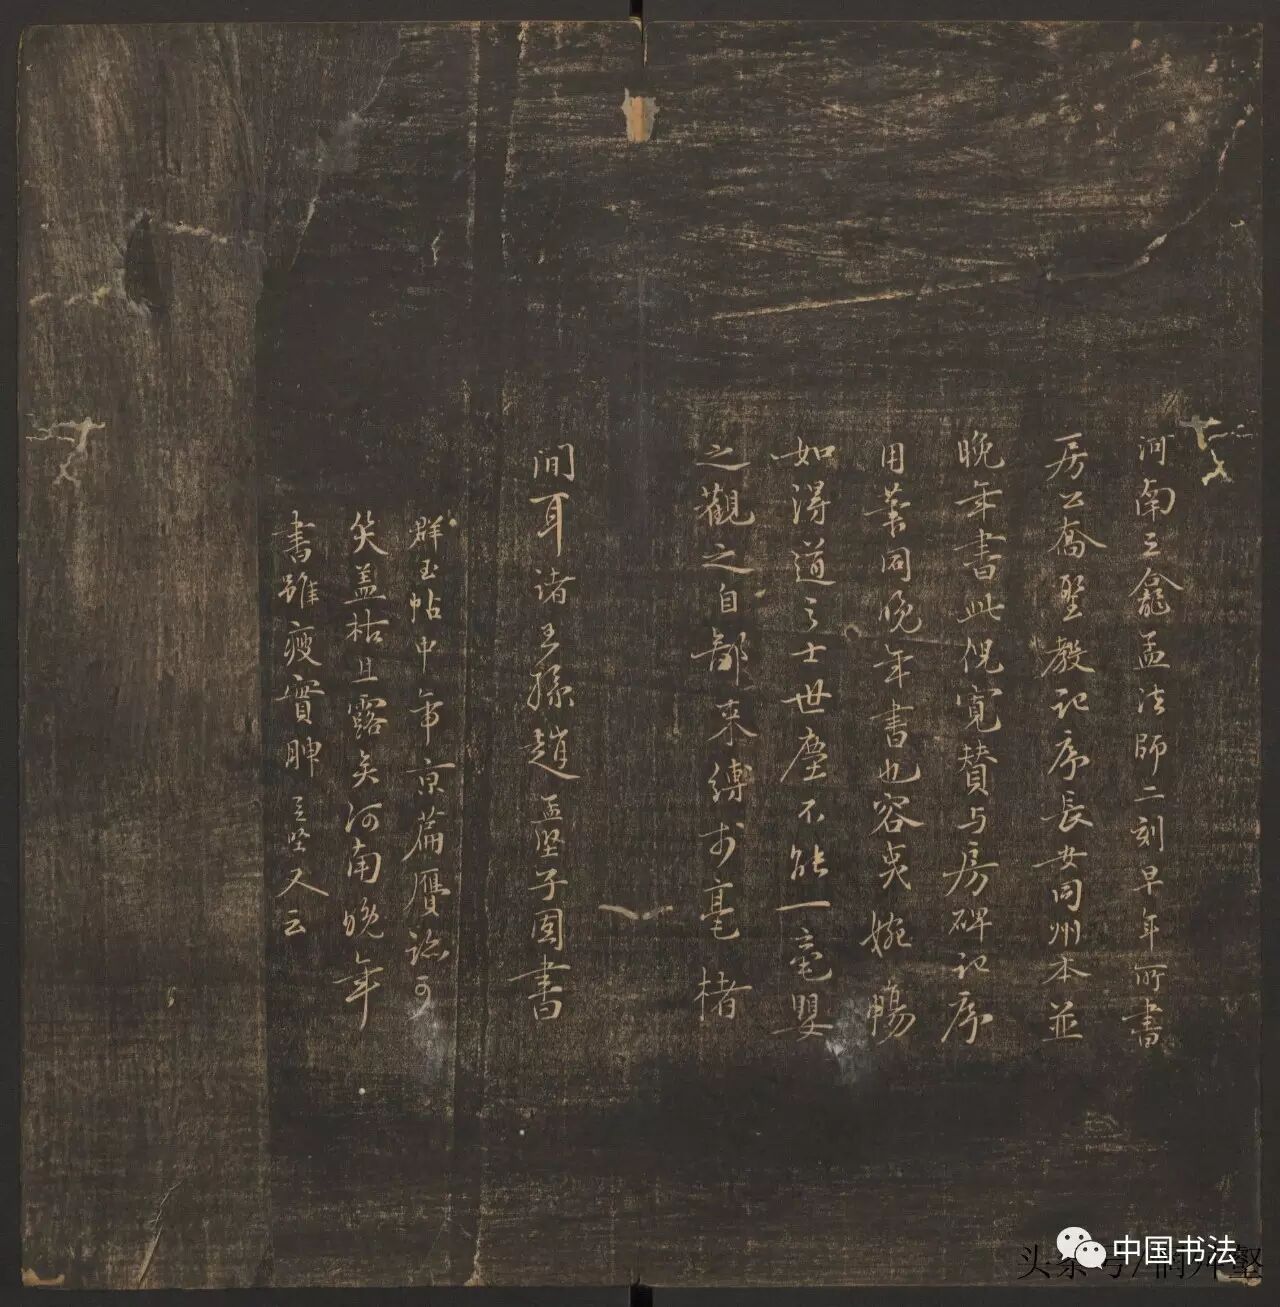 河南三龕孟法師二刻早年所書
房公喬聖教記序長安同州本並
晚年書此倪寬贊与房碑記序
用筆同晚年書也容夷婉暢
如得道之士世塵不能一毫嬰
之觀之自鄙束縛於毫楮
間耳諸王孫趙孟堅子固書
群玉帖中帝京篇贗跡可
笑蓋枯且露矣河南晚年
書雖瘦實腴孟堅又云
中国书法